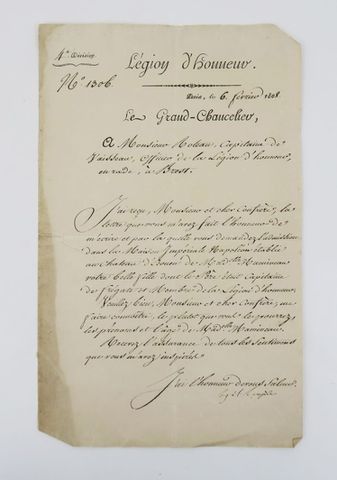 4e Division
Légion d'honneur.
N° 1306.
Paris, le 6. février 1808.
Le Grand-Chancelier,
A Monsieur Capitaine de
Vaisseau, Officier de la Légion d'honneur,
en rade, à Brest.
J'ai reçu, Monsieur et cher Confrère, la
lettre que vous m'avez fait l'honneur de
m'écrire et par la quelle vous demandez l'admission
dans la Maison Impériale Napoléon établie
au Chateau d'Ecouen de Mlle
votre belle fille dont le Père était Capitaine
de frégate et Membre de la Légion d'honneur.
Veuillez bien, Monsieur et cher Confrère, me
faire connaître, le plutôt que vous le pourrez,
les prénoms et l'âge de Mlle
Recevez l'assurance de tous les sentimens
que vous m'avez inspirés.
J'ai l'honneur de vous saluer